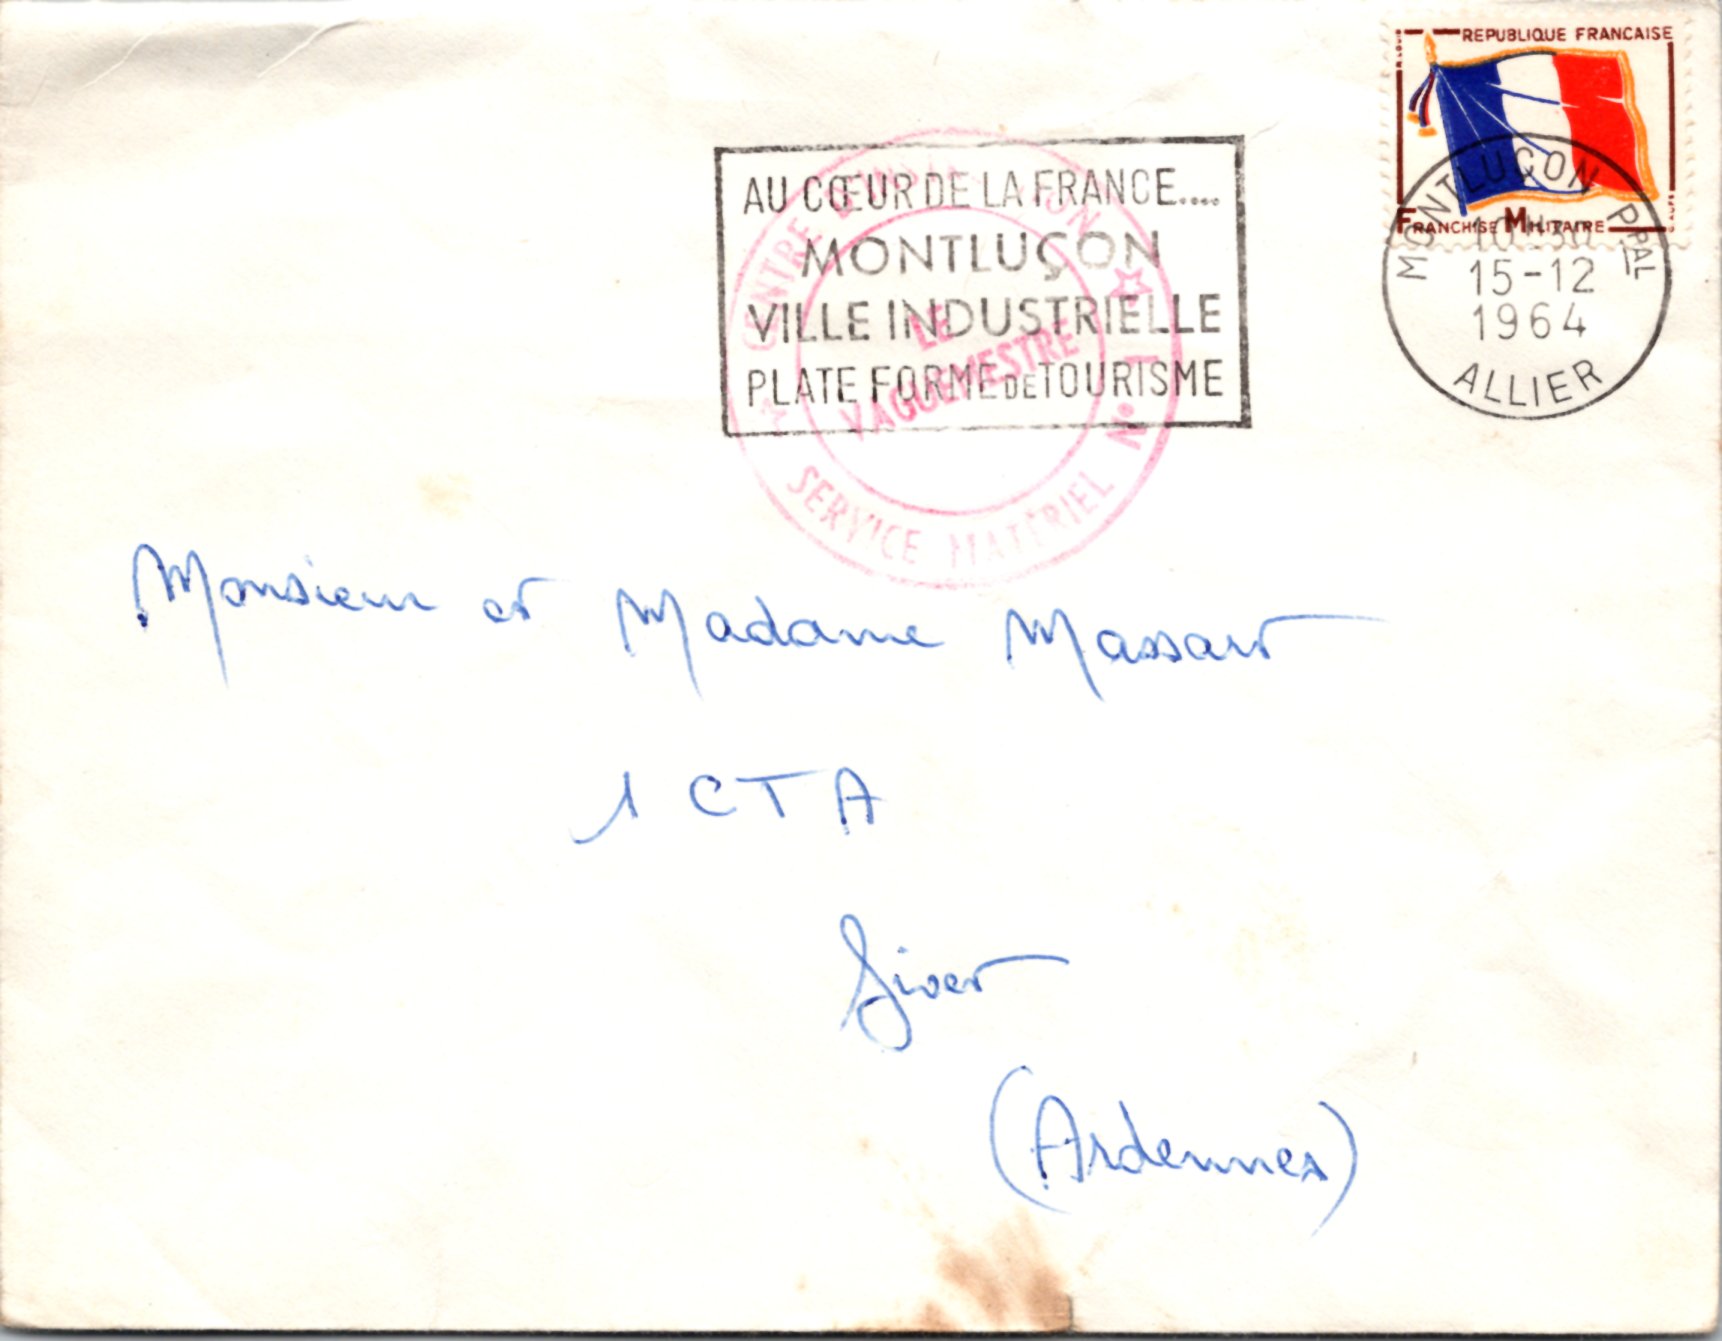 REPUBLIQUE FRANCAISE
FRANCHISE MILITAIRE
MONTLUÇON PPAL
15-12
1964
ALLIER
AU CŒUR DE LA FRANCE....
MONTLUÇON
VILLE INDUSTRIELLE
PLATE FORME DE TOURISME
CENTRE
SERVICE MATÉRIEL N° 1
LE
VAGUEMESTRE
Monsieur et Madame Massart
1 CTA
Givet
(Ardennes)